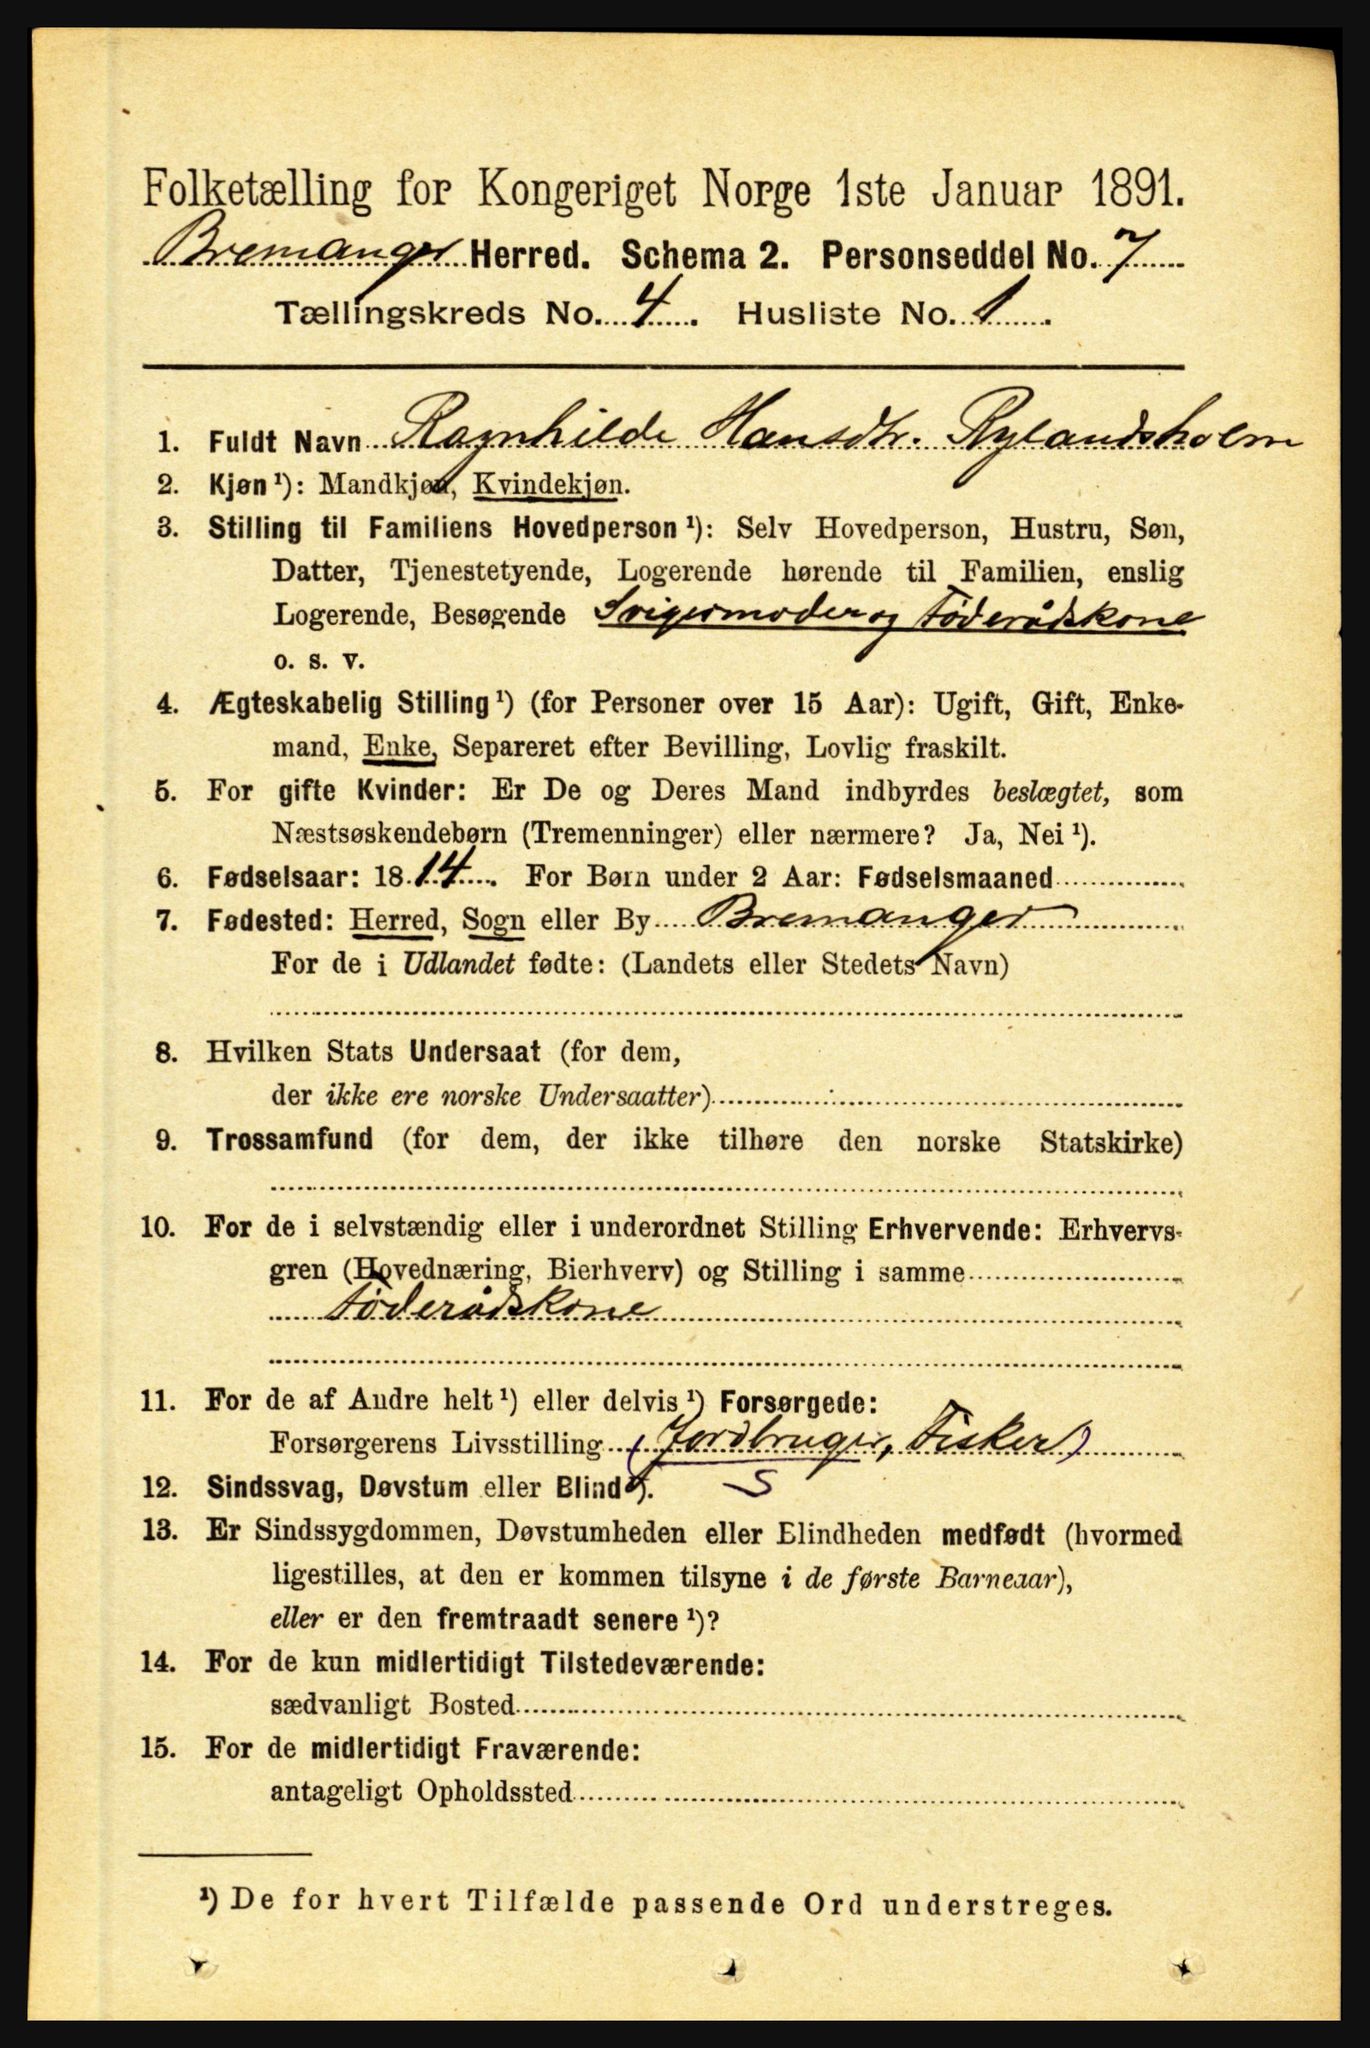 Folketælling for Kongeriget Norge 1ste Januar 1891.
Bremanger Herred. Schema 2. Personseddel No. 7
Tællingskreds No. 4. Husliste No. 1.
1. Fuldt Navn Ragnhilde Hansdtr. Rylandsholm
2. Kjøn ¹): Mandkjøn, Kvindekjøn.
3. Stilling til Familiens Hovedperson ¹): Selv Hovedperson, Hustru, Søn,
Datter, Tjenestetyende, Logerende hørende til Familien, enslig
Logerende, Besøgende Svigermoder og Føderådskone
o. s. v.
4. Ægteskabelig Stilling ¹) (for Personer over 15 Aar): Ugift, Gift, Enke-
mand, Enke, Separeret efter Bevilling, Lovlig fraskilt.
5. For gifte Kvinder: Er De og Deres Mand indbyrdes beslægtet, som
Næstsøskendebørn (Tremenninger) eller nærmere? Ja, Nei ¹).
6. Fødselsaar: 1814. For Børn under 2 Aar: Fødselsmaaned
7. Fødested: Herred, Sogn eller By Bremanger
For de i Udlandet fødte: (Landets eller Stedets Navn)
8. Hvilken Stats Undersaat (for dem,
der ikke ere norske Undersaatter)
9. Trossamfund (for dem, der ikke tilhøre den norske Statskirke)
10. For de i selvstændig eller i underordnet Stilling Erhvervende: Erhvervs-
gren (Hovednæring, Bierhverv) og Stilling i samme
Føderådskone
11. For de af Andre helt ¹) eller delvis ¹) Forsørgede:
Forsørgerens Livsstilling (Jordbruger, Fisker)
12. Sindssvag, Døvstum eller Blind ¹). S
13. Er Sindssygdommen, Døvstumheden eller Blindheden medfødt (hvormed
ligestilles, at den er kommen tilsyne i de første Barneaar),
eller er den fremtraadt senere ¹)?
14. For de kun midlertidigt Tilstedeværende:
sædvanligt Bosted
15. For de midlertidigt Fraværende:
antageligt Opholdssted
¹) De for hvert Tilfælde passende Ord understreges.